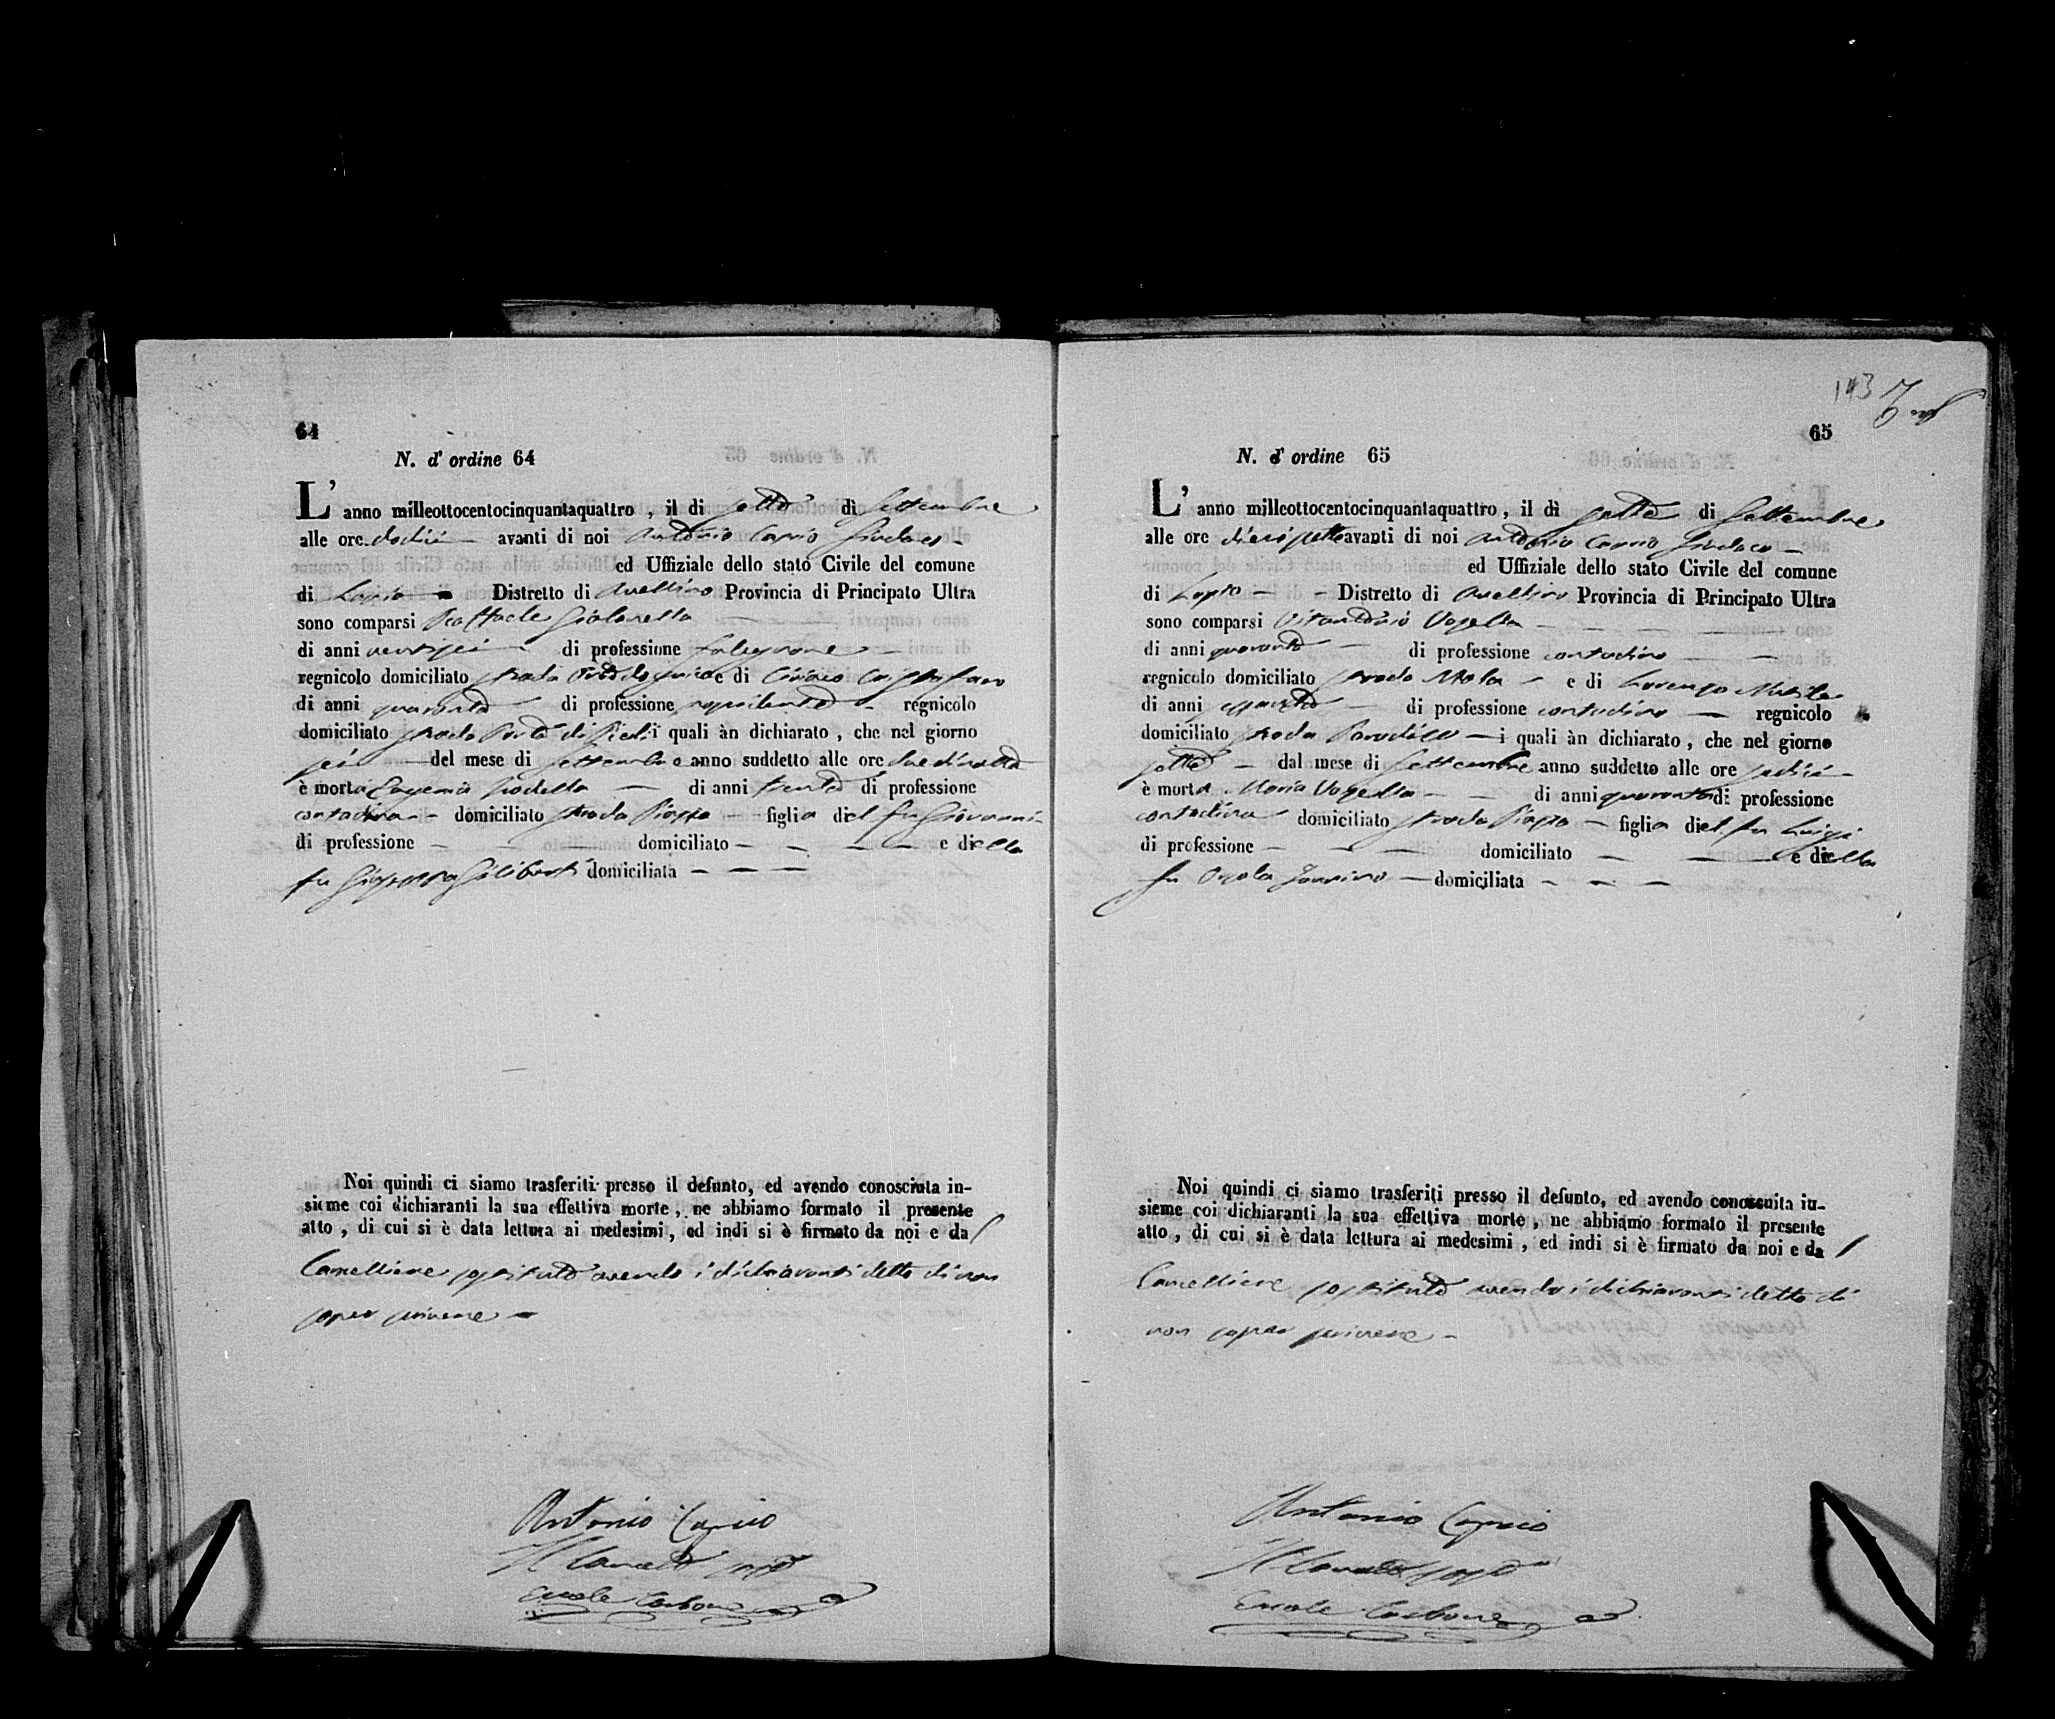 64
N. d' ordine 64
L' anno milleottocentocinquantaquattro, il di sette di Settembre
alle ore dodici avanti di noi Antonio Caprio Sindaco
ed Uffiziale dello stato Civile del comune
di Lapio Distretto di Avellino Provincia di Principato Ultra
sono comparsi Raffaele Giolarella
di anni ventisei di professione falegname
regnicolo domiciliato strada e di Ciriaco
di anni quaranta di professione regnicolo
domiciliato strada Porta di Piedi i quali àn dichiarato, che nel giorno
sei del mese di settembre anno suddetto alle ore due di notte
è morta Eugenia Iodella di anni trenta di professione
contadina domiciliato strada Piazza figlia del fu Giovanni
di professione domiciliato e della
fu Giuseppa Giliberti domiciliata
Noi quindi ci siamo trasferiti presso il defunto, ed avendo conosciuta in-
sieme coi dichiaranti la sua effettiva morte, ne abbiamo formato il presente
atto, di cui si è data lettura ai medesimi, ed indi si è firmato da noi e da
Cancelliere sostituto avendo i dichiaranti detto di non
saper scrivere
Antonio Caprio
Il Canc. sost.
Ercole Carbone
143
65
N. d' ordine 65
L' anno milleottocentocinquantaquattro, il dì sette di Settembre
alle ore diecisette avanti di noi Antonio Caprio Sindaco
ed Uffiziale dello stato Civile del comune
di Lapio Distretto di Avellino Provincia di Principato Ultra
sono comparsi Vitantonio Vozella
di anni quaranta di professione contadino
regnicolo domiciliato strada Mola e di Lorenzo
di anni di professione contadino regnicolo
domiciliato strada i quali àn dichiarato, che nel giorno
sette dal mese di Settembre anno suddetto alle ore sedici
è morta Maria Vozella di anni quaranta di professione
contadina domiciliato strada Piazza figlia del fu Luigi
di professione domiciliato e della
fu Orsola domiciliata
Noi quindi ci siamo trasferiti presso il defunto, ed avendo conosciuta in-
sieme coi dichiaranti la sua effettiva morte, ne abbiamo formato il presente
atto, di cui si è data lettura ai medesimi, ed indi si è firmato da noi e da
Cancelliere sostituto avendo i dichiaranti detto di
non saper scrivere
Antonio Caprio
Il Canc. sost.
Ercole Carbone